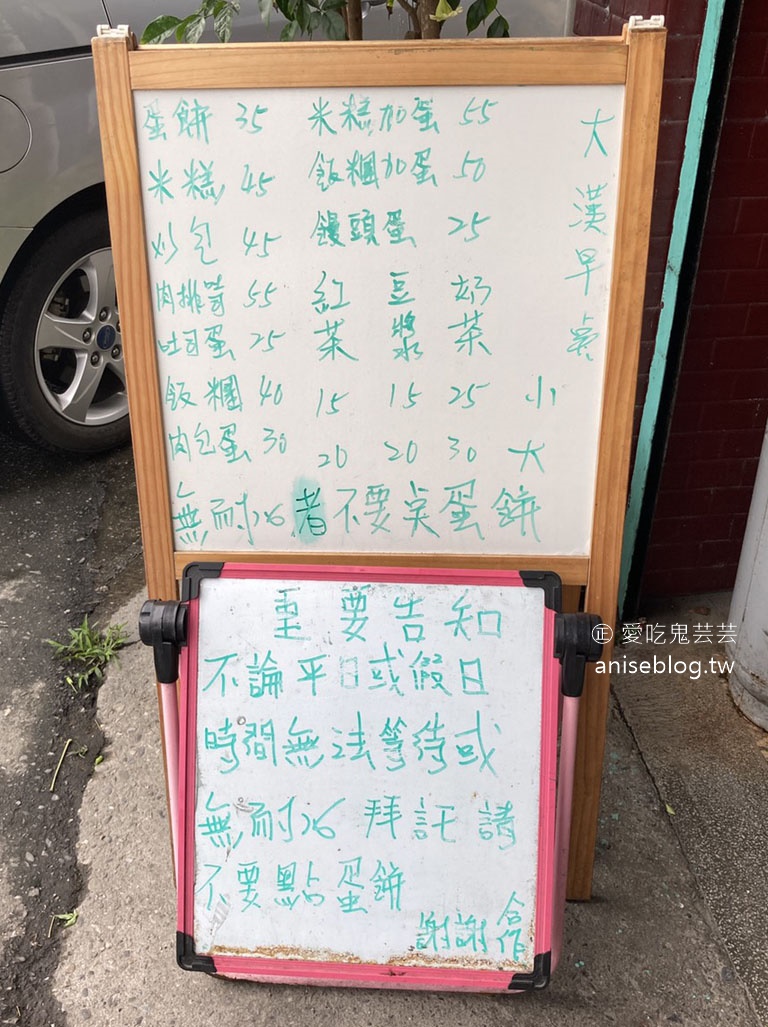 大漢早點
蛋餅 35 米糕加蛋 55
米糕 45 飯糰加蛋 50
炒包 45 饅頭蛋 25
肉排吐司 55 紅茶 豆漿 奶茶
吐司蛋 25
飯糰 40 15 15 25 小
肉包蛋 30 20 20 30 大
無耐心者不要点蛋餅
重要告知
不論平日或假日
時間無法等待或
無耐心 拜託請
不要點蛋餅
謝謝合作
愛吃鬼芸芸
aniseblog.tw